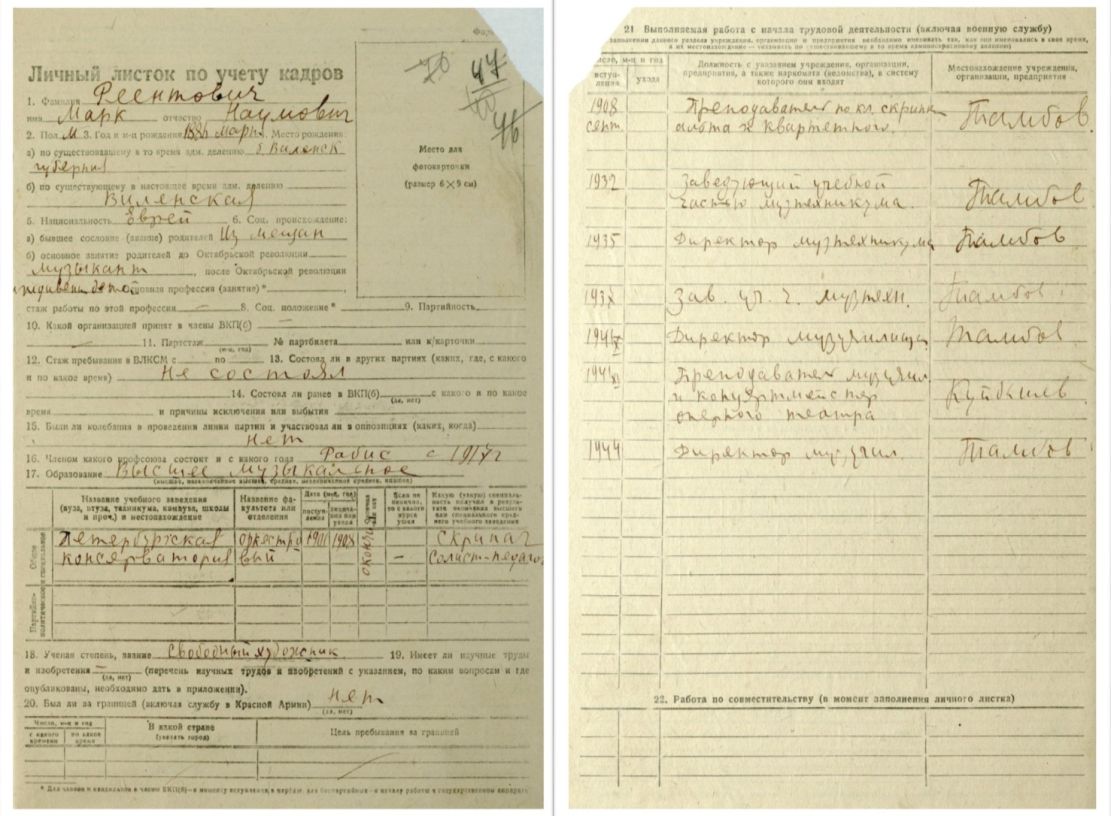 Форм
76
47
46
Личный листок по учету кадров
1. Фамилия Реентович
имя Марк отчество Наумович
2. Пол М. 3. Год и м-ц рождения март 4. Место рождения:
а) по существовавшему в то время адм. делению б. Виленск
губерния
б) по существующему в настоящее время адм. делению
Виленская
5. Национальность Еврей 6. Соц. происхождение:
а) бывшее сословие (звание) родителей Из мещан
б) основное занятие родителей до Октябрьской революции
музыкант, после Октябрьской революции
основная профессия (занятие)*
стаж работы по этой профессии — 8. Соц. положение* 9. Партийность.
Место для
фотокарточки
(размер 6×9 см)
10. Какой организацией принят в члены ВКП(б) —
11. Партстаж № партбилета или к/карточки
(м-ц, год)
12. Стаж пребывания в ВЛКСМ с по 13. Состоял ли в других партиях (каких, где, с какого
и по какое время) Не состоял
14. Состоял ли ранее в ВКП(б) с какого и по какое
(да, нет)
время и причины исключения или выбытия
15. Были ли колебания в проведении линии партии и участвовал ли в оппозициях (каких, когда)
нет
16. Членом какого профсоюза состоит и с какого года Рабис с 1917 г
17. Образование Высшее музыкальное
(высшее, незаконченное высшее, среднее, незаконченное среднее, низшее)
Название учебного заведения (вуза, втуза, техникума, комвуза, школы и проч.) и местонахождение
Название факультета или отделения
Дата (м-ц, год)
поступления
окончания или ухода
Если не окончил, то с какого курса ушел
Какую (узкую) специальность получил в результате окончания высшего или специального среднего учебного заведения
Общее
Петербуржская оркестро 1908 скрипач
консерватория вый окончил — Солист-педагог
Партийно-политическое
18. Ученая степень, звание Свободный художник 19. Имеет ли научные труды
и изобретения — (перечень научных трудов и изобретений с указанием, по каким вопросам и где
(да, нет)
опубликованы, необходимо дать в приложении).
20. Был ли за границей (включая службу в Красной Армии) Нет
(да, нет)
Число, м-ц и год
с какого времени
по какое время
В какой стране
(указать город)
Цель пребывания за границей
21 Выполняемая работа с начала трудовой деятельности (включая военную службу)
заполнении данного раздела учреждения, организации и предприятия необходимо именовать так, как они именовались в свое время,
а их местонахождение — указывать по существовавшему в то время административному делению)
Число, м-ц и год
вступления
ухода
Должность с указанием учреждения, организации, предприятия, а также наркомата (ведомства), в систему которого они входят
Местонахождение учреждения, организации, предприятия
1908 Преподаватель по кл. скрипки Тамбов.
сент. альта и квартетного.
1932 Заведующий учебной Тамбов
частью музтехникума.
1935 Директор музтехникума Тамбов
1937 Зав. уч. ч. музтехн. Тамбов.
1941 Директор музучилища Тамбов
1941 XI Преподаватель музучил. Куйбышев
и концертмейстер
оперного театра
1944 Директор музучил. Тамбов
22. Работа по совместительству (в момент заполнения личного листка)